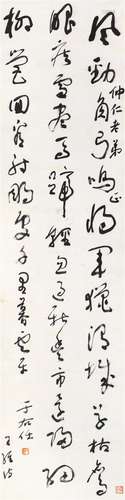 仲仁老弟正
風勁角弓鳴將軍獵渭城草枯鷹
眼疾雪盡馬蹄輕忽過新豐市還歸細
柳營回看射鵰處千里暮雲平
于右任
王維詩